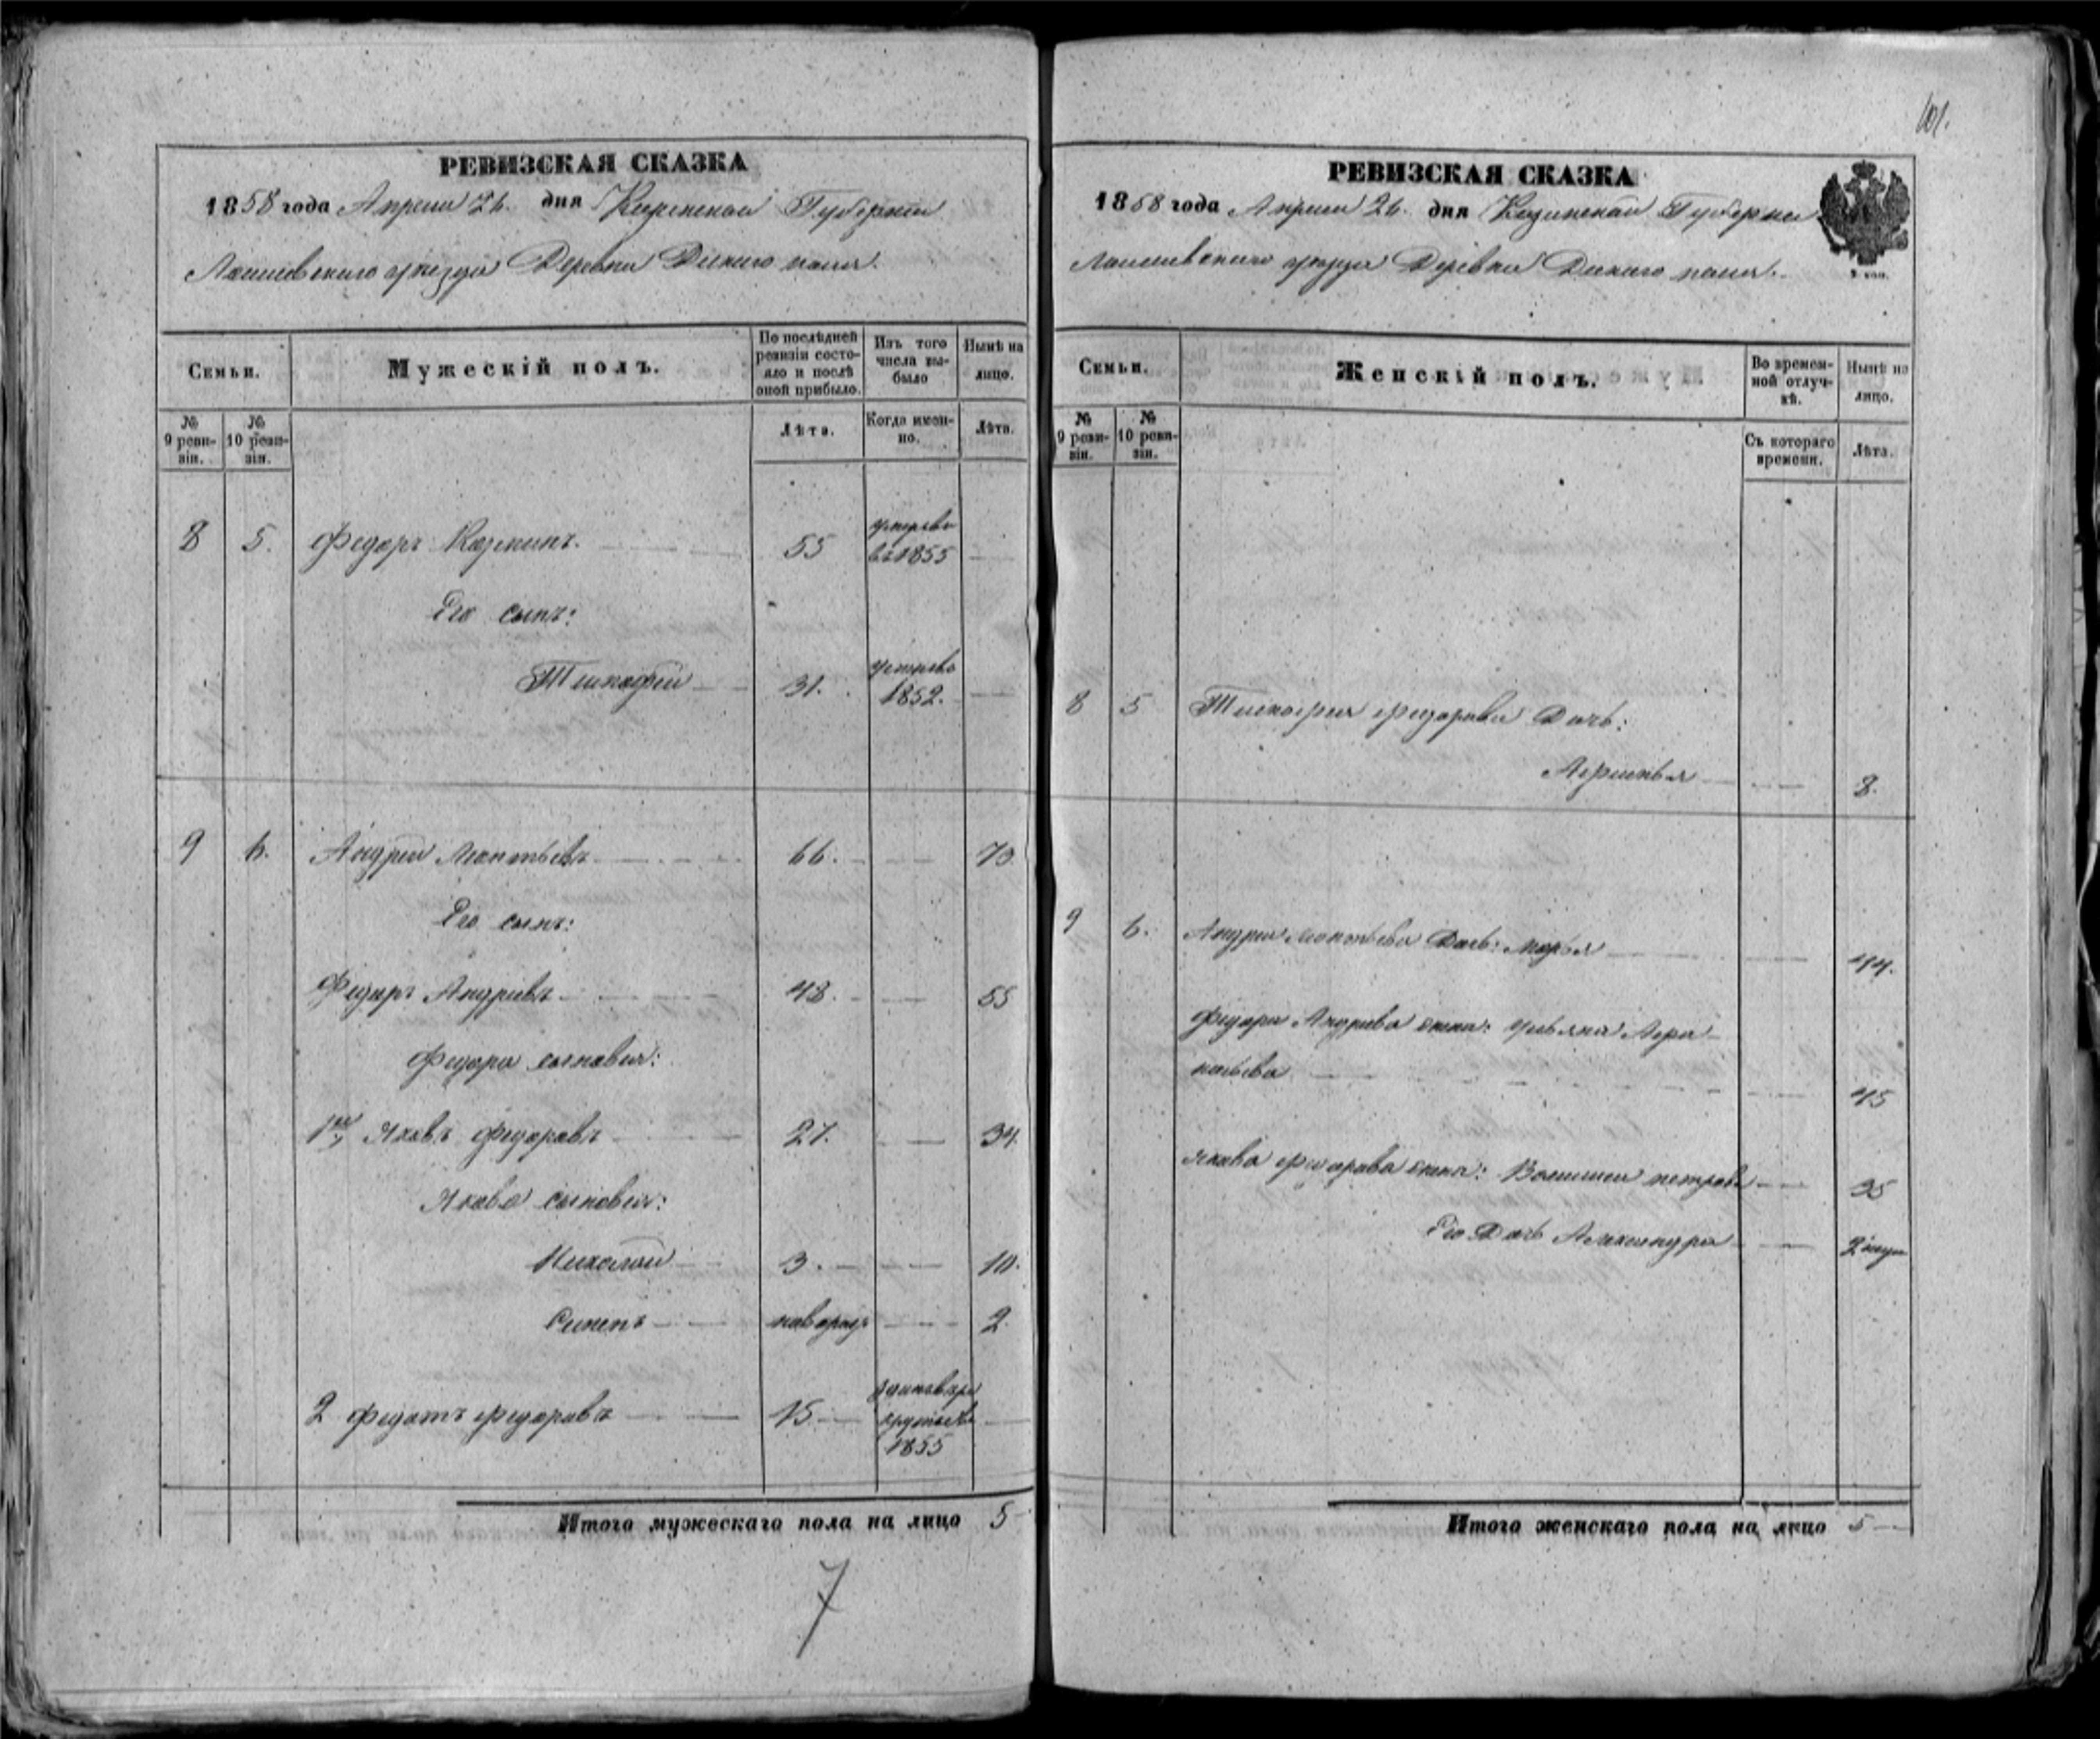 101.
РЕВИЗСКАЯ СКАЗКА
1858 года Апреля 26. дня Казанской Губернии
Лаишевскаго уезда Деревни Дикаго поля.
Семьи.
Мужескій полъ.
По послѣдней ревизіи состояло и послѣ оной прибыло.
Изъ того числа выбыло
Нынѣ на лицо.
№ 9 ревизіи.
№ 10 ревизіи.
Лѣта.
Когда именно.
Лѣта.
8 5. Федоръ Козминъ. 55 умерв въ 1855
Его сынъ:
Тимофей 31. 1852.
9 6. Андрей Леонтьевъ 66. 73
Его сынъ:
Федоръ Андреевъ 48. 55
Федора сыновья:
1й Яковъ Федоровъ 27. 34.
Якова сыновья:
Николай 3. 10.
Семенъ 2.
2 Федотъ Федоровъ 15. 1855
Итого мужескаго пола на лицо 5
7
РЕВИЗСКАЯ СКАЗКА
1858 года Апреля 26. дня Казанской Губернии
Лаишевскаго уезда Деревни Дикаго поля.
Семьи.
Женскій полъ.
Во временной отлучкѣ.
Нынѣ на лицо.
№ 9 ревизіи.
№ 10 ревизіи.
Съ котораго времени.
Лѣта.
8 5 Тимофея Федорова Дочь:
Афимья 8.
9 6. Андрея Леонтьева Дочь: Марья 44.
Федора Андреева жена: Ульяна Афонасьева 45
Якова Федорова жена: Петрова 35
Его Дочь Александра
Итого женскаго пола на лицо 5